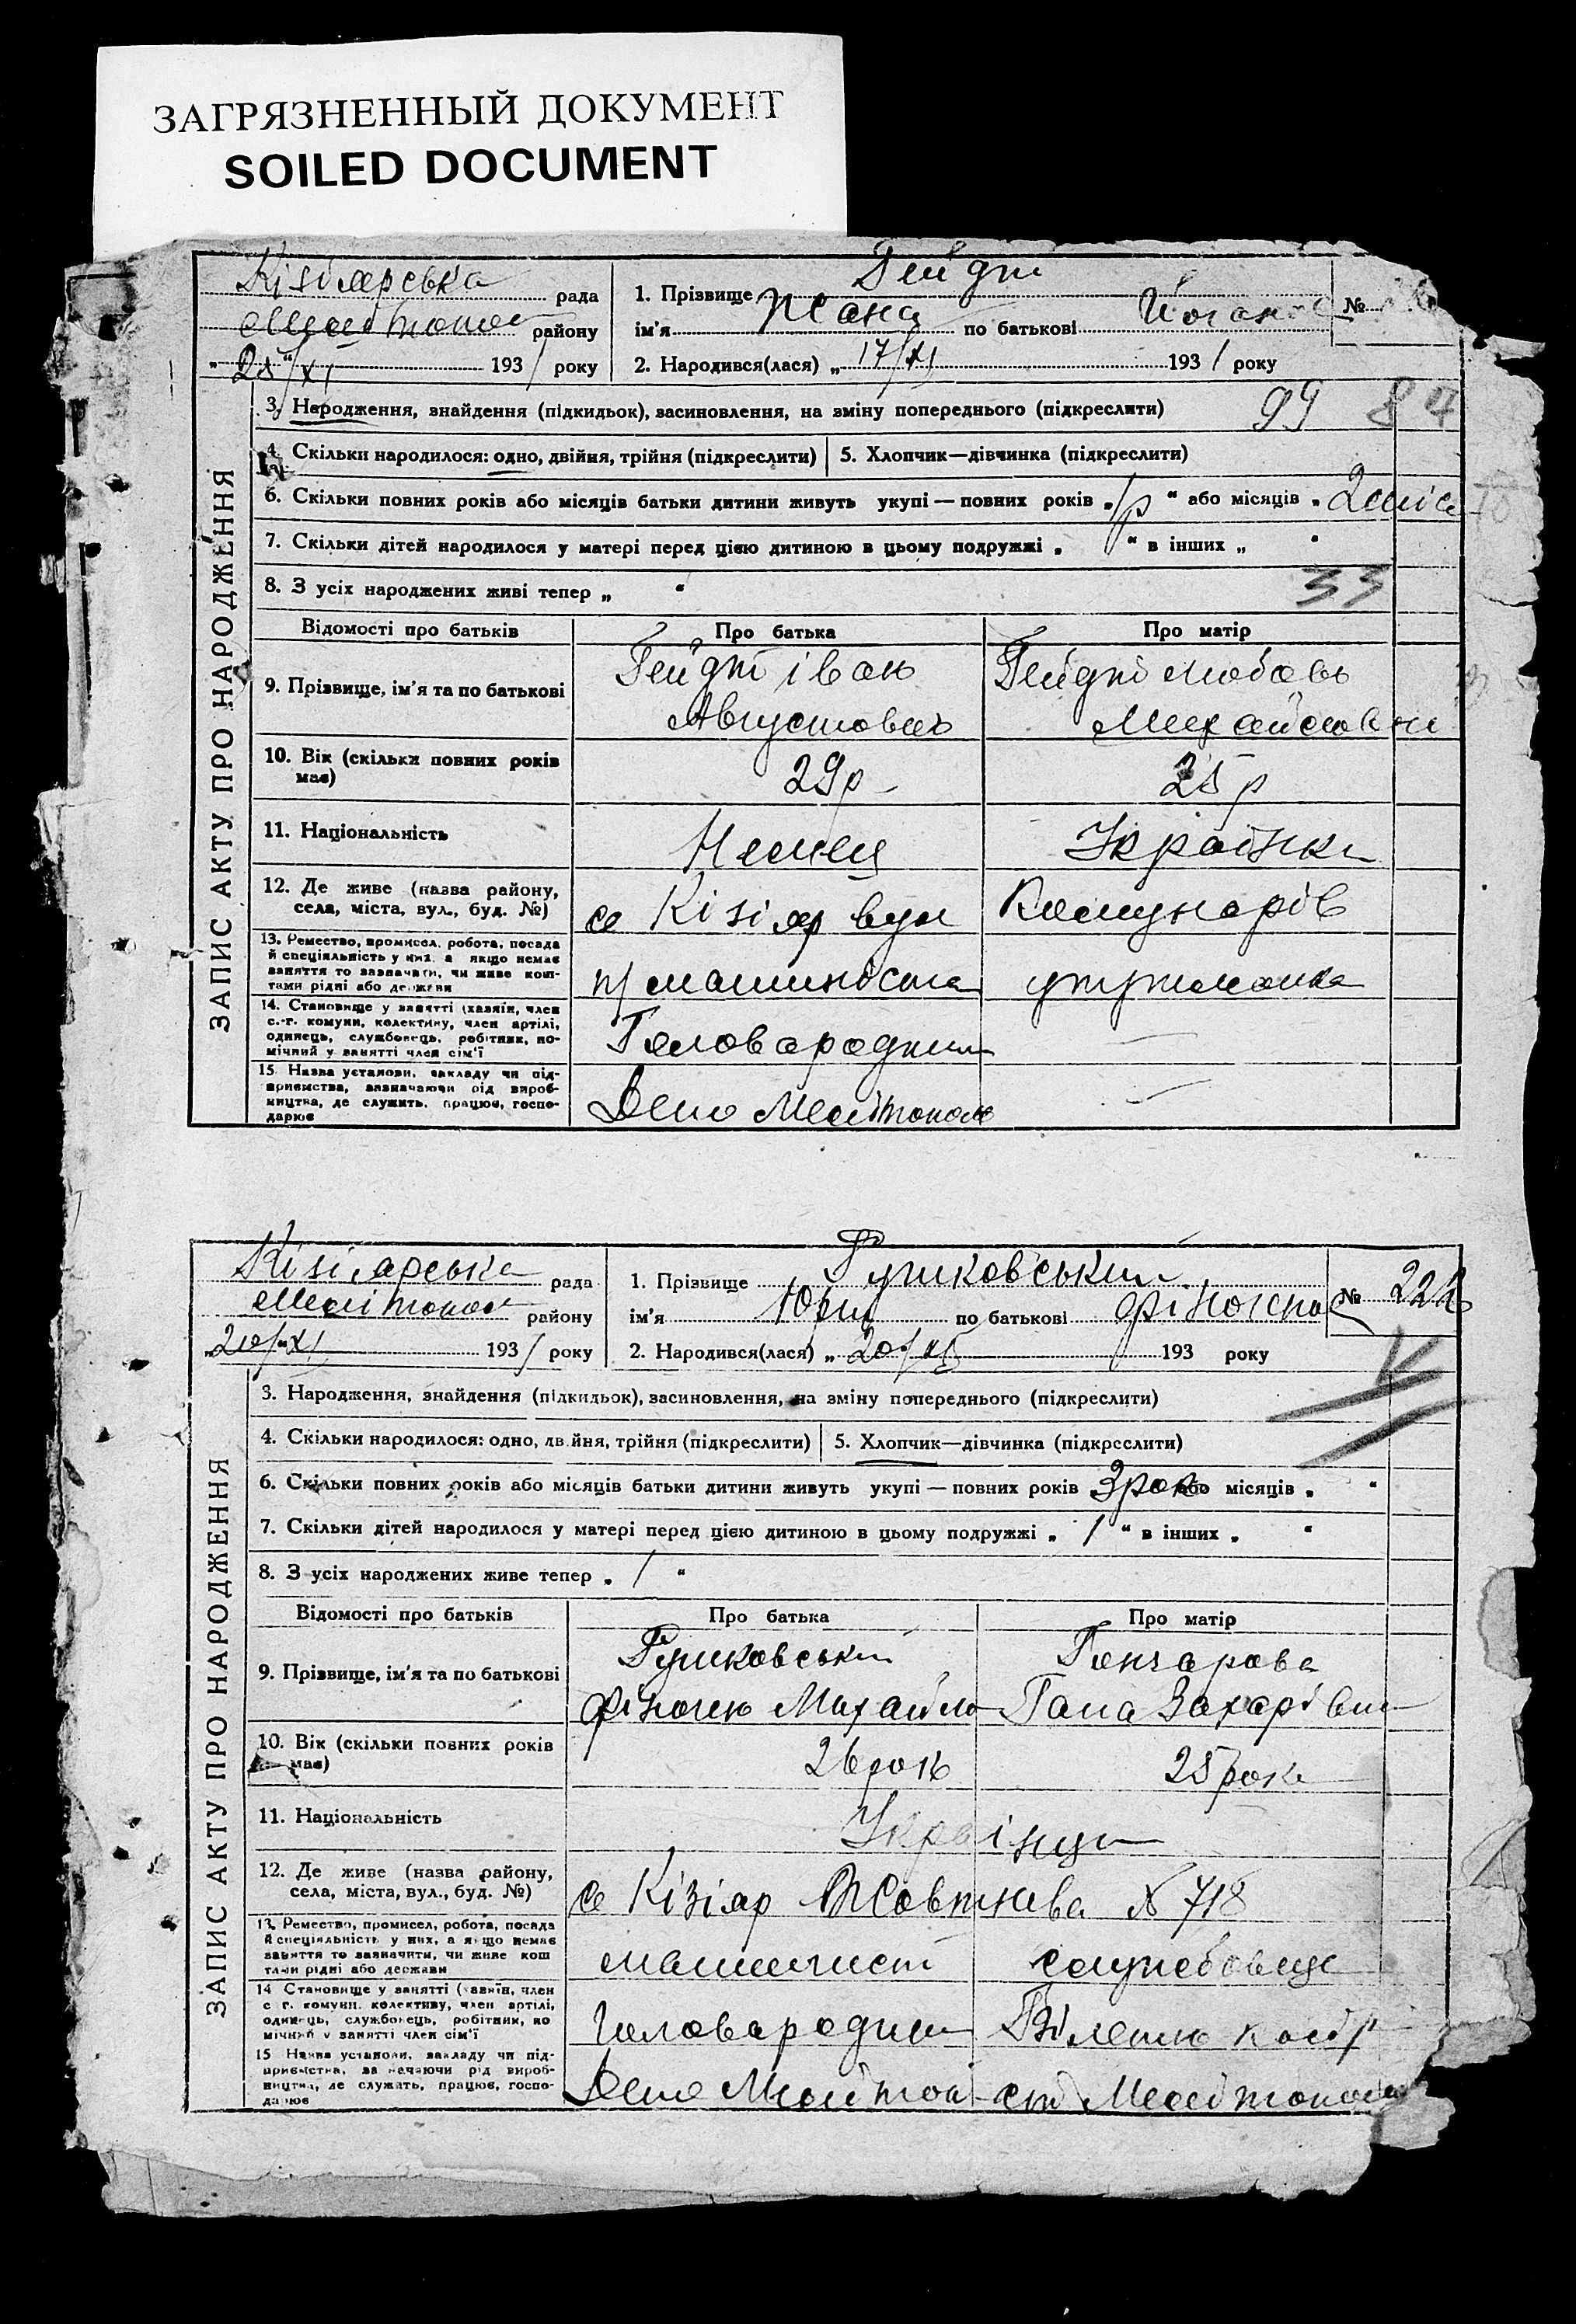 ЗАГРЯЗНЕННЫЙ ДОКУМЕНТ
SOILED DOCUMENT
ЗАПИС АКТУ ПРО НАРОДЖЕННЯ
Кізіярська рада
району
" 25 "/XI 1931 року
1. Прізвище Гейдт
ім'я Жана по батькові №
2. Народився(лася) „ 17/XI 1931 року
3. Народження, знайдення (підкидьок), засиновлення, на зміну попереднього (підкреслити) 99
4. Скільки народилося: одно, двійня, трійня (підкреслити) 5. Хлопчик—дівчинка (підкреслити)
6. Скільки повних років або місяців батьки дитини живуть укупі — повних років „ 1р “ або місяців „ 2 міс
7. Скільки дітей народилося у матері перед цією дитиною в цьому подружжі „ “ в інших „ “
8. З усіх народжених живі тепер „ “ 33
Відомості про батьків Про батька Про матір
9. Прізвище, ім'я та по батькові Гейдт іван Гейдт Любовь
Августович
10. Вік (скільки повних років 29р 25р
має)
11. Національність Немец Українка
12. Де живе (назва району,
села, міста, вул., буд. №) с Кізіяр вул Комунарів
13. Ремество, промисел, робота, посада
й спеціяльність у них, а якщо немає
заняття то зазначати, чи живе кош-
тами рідні або держави п/машиніста утриманка
14. Становище у занятті (хазяїн, член
с.-г. комуни, колективу, член артілі,
одинець, службовець, робітник, по-
мічний у занятті член сім'ї —
15. Назва установи, закладу чи під-
приємства, зазначаючи рід вироб-
ництва, де служить, працює, госпо-
дарює Депо Мелітополь —
ЗАПИС АКТУ ПРО НАРОДЖЕННЯ
Кізіярська рада
району
„ 20/XI 1931 року
1. Прізвище
ім'я Юрій по батькові № 222
2. Народився(лася) „ 20/XI 193 року
3. Народження, знайдення (підкидьок), засиновлення, на зміну попереднього (підкреслити)
4. Скільки народилося: одно, двійня, трійня (підкреслити) 5. Хлопчик—дівчинка (підкреслити)
6. Скільки повних років або місяців батьки дитини живуть укупі — повних років 3 рок або місяців „ “
7. Скільки дітей народилося у матері перед цією дитиною в цьому подружжі „ 1 “ в інших „ “
8. З усіх народжених живе тепер „ 1 “
Відомості про батьків Про батька Про матір
9. Прізвище, ім'я та по батькові Гончарова
Михайло Гана Захарівн
10. Вік (скільки повних років 26 рок 25 рок
має)
11. Національність Українци
12. Де живе (назва району,
села, міста, вул., буд. №) с Кізіяр Жовтнева № 718
13. Ремество, промисел, робота, посада
й спеціяльність у них, а якщо немає
заняття то зазначити, чи живе кош
тами рідні або держави машинист службовець
14 Становище у занятті (хазяїн, член
с г. комуни, колективу, член артілі,
одинець, службовець, робітник, по
мічний у занятті член сім'ї Білетно касір
15 Назва установи, закладу чи під-
приємства, зазначаючи рід вироб-
ництва, де служать, працює, госпо-
дарює Депо Меліто ст Мелітополь